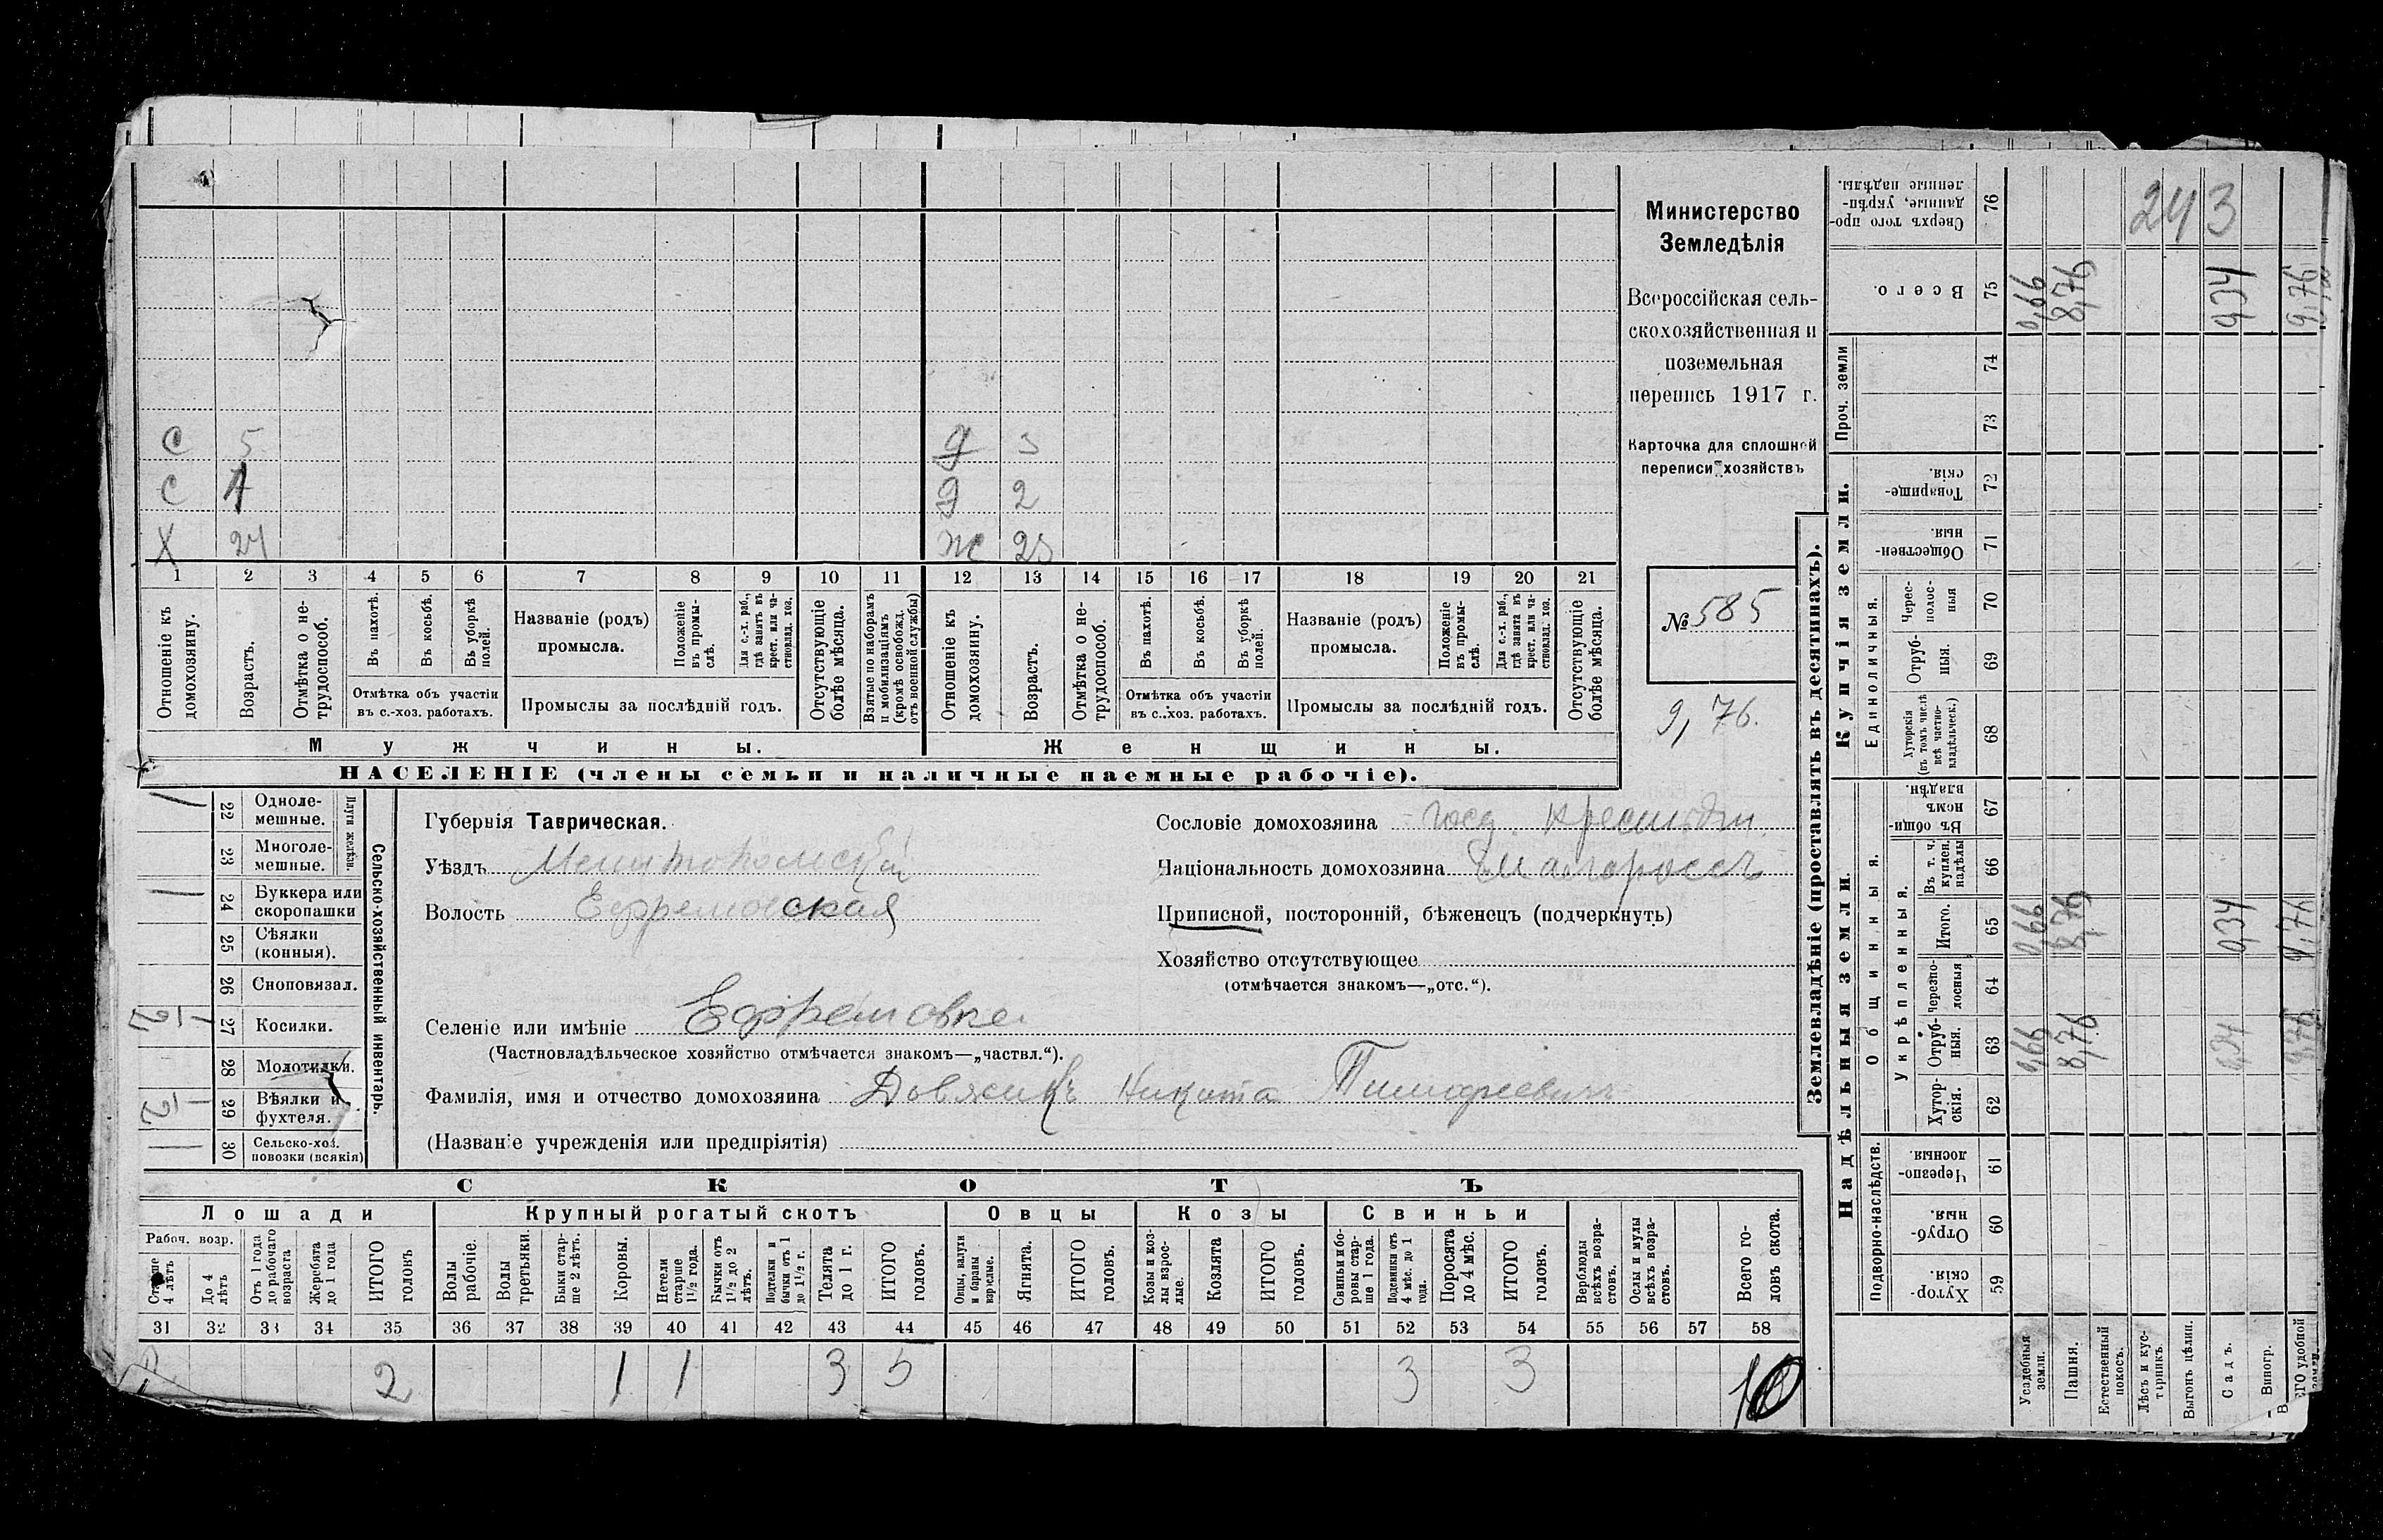 С 5 д 3
С 1 д 2
Х 24 ж 23
1 2 3 4 5 6 7 8 9 10 11 12 13 14 15 16 17 18 19 20 21
Отношеніе къ домохозяину.
Возрастъ.
Отмѣтка о не-
трудоспособ.
Въ пахотѣ.
Въ косьбѣ.
Въ уборкѣ полей.
Отмѣтка объ участіи
въ с.-хоз. работахъ.
Названіе (родъ)
промысла.
Положеніе въ промы-
слѣ.
Для с.-х. раб., гдѣ занятъ въ крест. или ча-
стновлад. хоз.
Промыслы за послѣдній годъ.
Отсутствующіе болѣе мѣсяца.
Взятые по наборамъ и мобилизаціямъ (кромѣ освобожд. отъ военной службы)
Отношеніе къ домохозяину.
Возрастъ.
Отмѣтка о не-
трудоспособ.
Въ пахотѣ.
Въ косьбѣ.
Въ уборкѣ полей.
Отмѣтка объ участіи
въ с.-хоз. работахъ.
Названіе (родъ)
промысла.
Положеніе въ промы-
слѣ.
Для с.-х. раб., гдѣ занята въ крест. или ча-
стновлад. хоз.
Промыслы за послѣдній годъ.
Отсутствующіе болѣе мѣсяца.
Мужчины.
Женщины.
НАСЕЛЕНІЕ (члены семьи и наличные наемные рабочіе).
Министерство
Земледѣлія
Всероссійская сель-
скохозяйственная и
поземельная
перепись 1917 г.
Карточка для сплошной
переписи хозяйствъ
№ 585
9,76.
Сельско-хозяйственный инвентарь.
Плуги желѣзн.
22 Одноле-
мешные.
23 Многоле-
мешные.
24 Буккера или
скоропашки
25 Сѣялки
(конныя).
26 Сноповязал.
27 Косилки.
28 Молотилки.
29 Вѣялки и
фухтеля.
30 Сельско-хоз.
повозки (всякія)
Губернія Таврическая.
Уѣздъ Мелитопольскій
Волость Ефремовская
Селеніе или имѣніе Ефремовка
(Частновладѣльческое хозяйство отмѣчается знакомъ—„частвл.“).
Фамилія, имя и отчество домохозяина Довжикъ Никита Тимофеевичъ
(Названіе учрежденія или предпріятія)
Сословіе домохозяина госд. крестьян.
Національность домохозяина малороссъ
Приписной, посторонній, бѣженецъ (подчеркнуть)
Хозяйство отсутствующее
(отмѣчается знакомъ—„отс.“).
СКОТЪ
Лошади
Крупный рогатый скотъ
Овцы
Козы
Свиньи
Рабоч. возр.
Старше 4 лѣтъ
До 4 лѣтъ
Отъ 1 года до рабочаго возраста
Жеребята до 1 года
ИТОГО головъ
Волы рабочіе.
Волы третьяки.
Быки стар-
ше 2 лѣтъ.
Коровы.
Нетели старше 1½ года.
Бычки отъ 1½ до 2 лѣтъ.
Подтелки и бычки отъ 1 до 1½ г.
Телята до 1 г.
ИТОГО головъ.
Овцы, валухи и бараны взрослые.
Ягнята.
ИТОГО головъ.
Козы и коз-
лы взрос-
лые.
Козлята
ИТОГО головъ.
Свиньи и бо-
ровы стар-
ше 1 года.
Подсвинки отъ 4 мѣс. до 1 года.
Поросята до 4 мѣс.
ИТОГО головъ.
Верблюды всѣхъ возра-
стовъ.
Ослы и мулы всѣхъ возра-
стовъ.
Всего го-
ловъ скота.
31 32 33 34 35 36 37 38 39 40 41 42 43 44 45 46 47 48 49 50 51 52 53 54 55 56 57 58
2 1 1 3 5 3 3 10
Землевладѣніе (проставлять въ десятинахъ).
Надѣльныя земли.
Купчія земли.
Проч. земли
Подворно-наслѣдств.
Общинныя.
Укрѣпленныя.
Единоличныя.
Хутор-
скія. 59
Отруб-
ныя. 60
Черезпо-
лосныя 61
Хутор-
скія. 62
Отруб-
ныя. 63
Черезпо-
лосныя 64
Итого. 65
Въ т. ч. куплен. надѣлы 66
Въ общи-
номъ владѣн. 67
Хуторскія (въ томъ числѣ всѣ частно-
владѣльческ.) 68
Отруб-
ныя. 69
Черес-
полос-
ныя 70
Обществен-
ныя 71
Товарище-
скія. 72
73
74
Всего. 75
Сверхъ того про-
данные, укрѣп-
ленные надѣлы. 76
Усадебныя земли.
0,66 0,66 0,66
Пашня.
8,76 8,76 8,76
Естественный покосъ.
Лѣсъ и кус-
тарникъ.
Выгонъ цѣлин.
Садъ.
0,34 0,34 0,34
Виногр.
ЕГО удобной
9,76 9,76 9,76
243